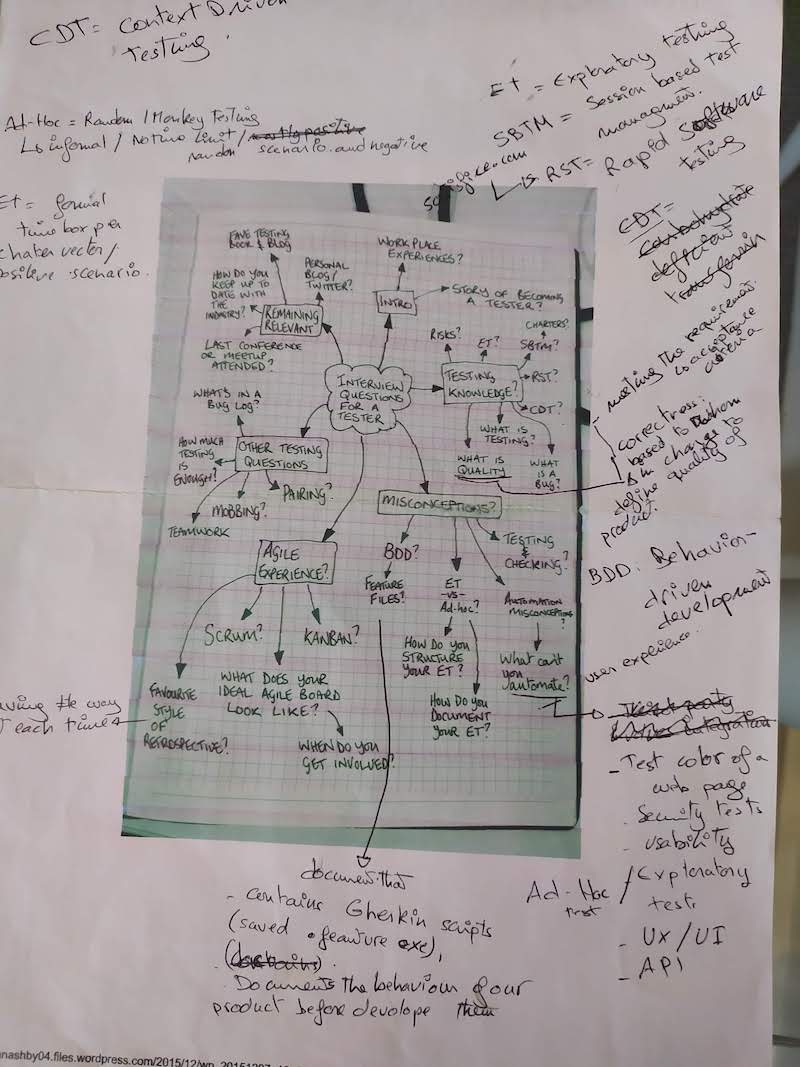 CDT = Context Driven
Testing.
Ad-Hoc = Random / Monkey Testing
↳ informal / No time limit /
random scenario. and negative
ET = Exploratory testing
SBTM = Session based test
managment.
↳ is RST = Rapid Software
testing
ET = formal
time box per
vector /
scenario.
CDT =
meeting the requirement.
acceptance
criteria
correctness:
based to
change to
define quality of
product.
FAVE TESTING
BOOK & BLOG
WORKPLACE
EXPERIENCES?
HOW DO YOU
KEEP UP TO
DATE WITH
THE
INDUSTRY?
PERSONAL
BLOG/
TWITTER?
INTRO
STORY OF BECOMING
A TESTER?
REMAINING
RELEVANT
LAST CONFERENCE
OR MEETUP
ATTENDED?
RISKS?
ET?
CHARTERS?
SBTM?
INTERVIEW
QUESTIONS
FOR A
TESTER
TESTING
KNOWLEDGE?
RST?
CDT?
WHAT IS
TESTING?
WHAT IS
QUALITY
WHAT IS
A
BUG?
WHAT'S IN A
BUG LOG?
HOW MUCH
TESTING
IS
ENOUGH?
OTHER TESTING
QUESTIONS
PAIRING?
MOBBING?
TEAMWORK
MISCONCEPTIONS?
AGILE
EXPERIENCE?
BDD?
FEATURE
FILES?
ET
-VS-
Ad-hoc?
TESTING
&
CHECKING?
AUTOMATION
MISCONCEPTIONS
?
SCRUM?
KANBAN?
HOW DO YOU
STRUCTURE
YOUR ET?
What can't
you
automate?
FAVOURITE
STYLE
OF
RETROSPECTIVE?
WHAT DOES YOUR
IDEAL AGILE BOARD
LOOK LIKE?
HOW DO YOU
DOCUMENT
YOUR ET?
WHEN DO YOU
GET INVOLVED?
BDD: Behavior-
driven
development
user experience.
the way
each time
- Test color of a
web page
- Security tests
- usability
Ad-Hoc / Exploratory
test test.
- UX / UI
- API
document that
- contains Gherkin scripts
(saved .feature exe),
- Documents the behaviour of our
product before develope them
nashby04.files.wordpress.com/2015/12/wp_20151207